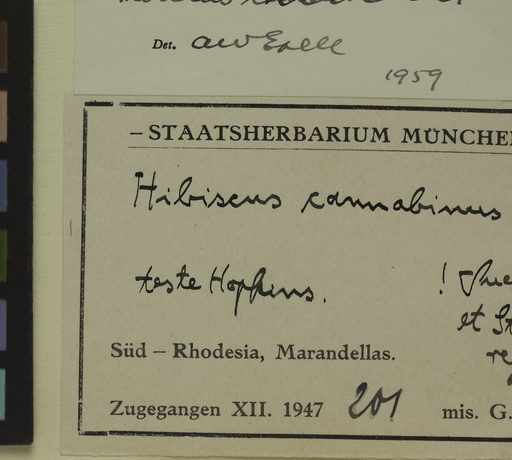 Det. AW Exell
1959
– STAATSHERBARIUM MÜNCHEN
Hibiscus cannabinus
teste Hopkins. !
et St
Süd – Rhodesia, Marandellas. re
Zugegangen XII. 1947 201 mis. G.